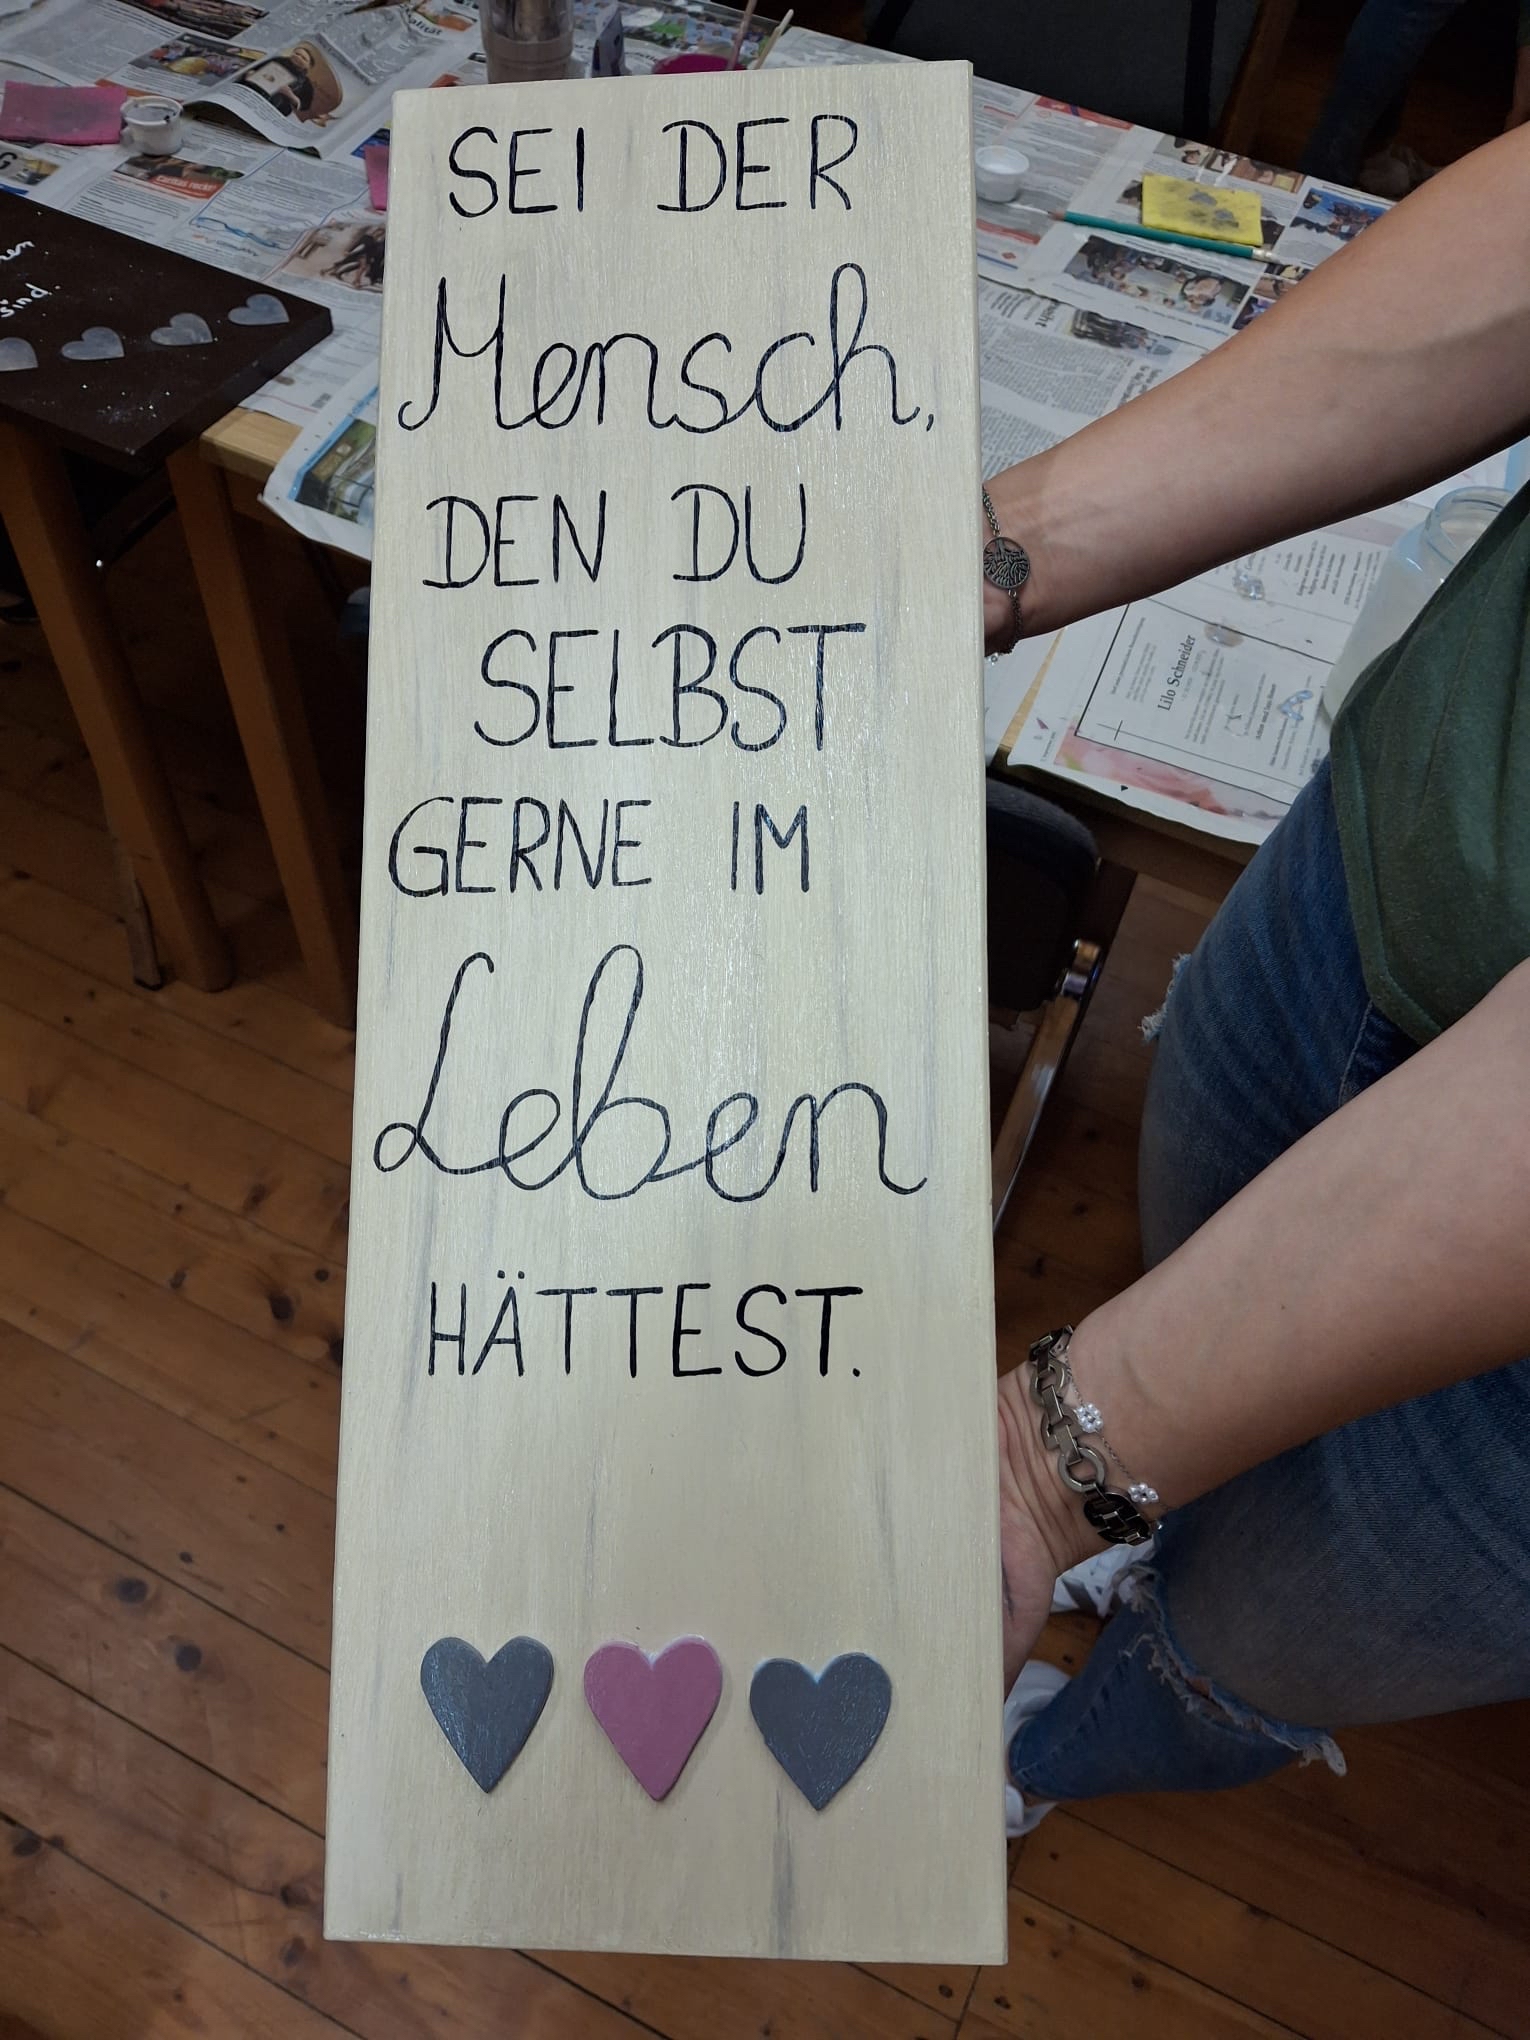 SEI DER
Mensch,
DEN DU
SELBST
GERNE IM
Leben
HÄTTEST.
sind.
Lilo Schneider